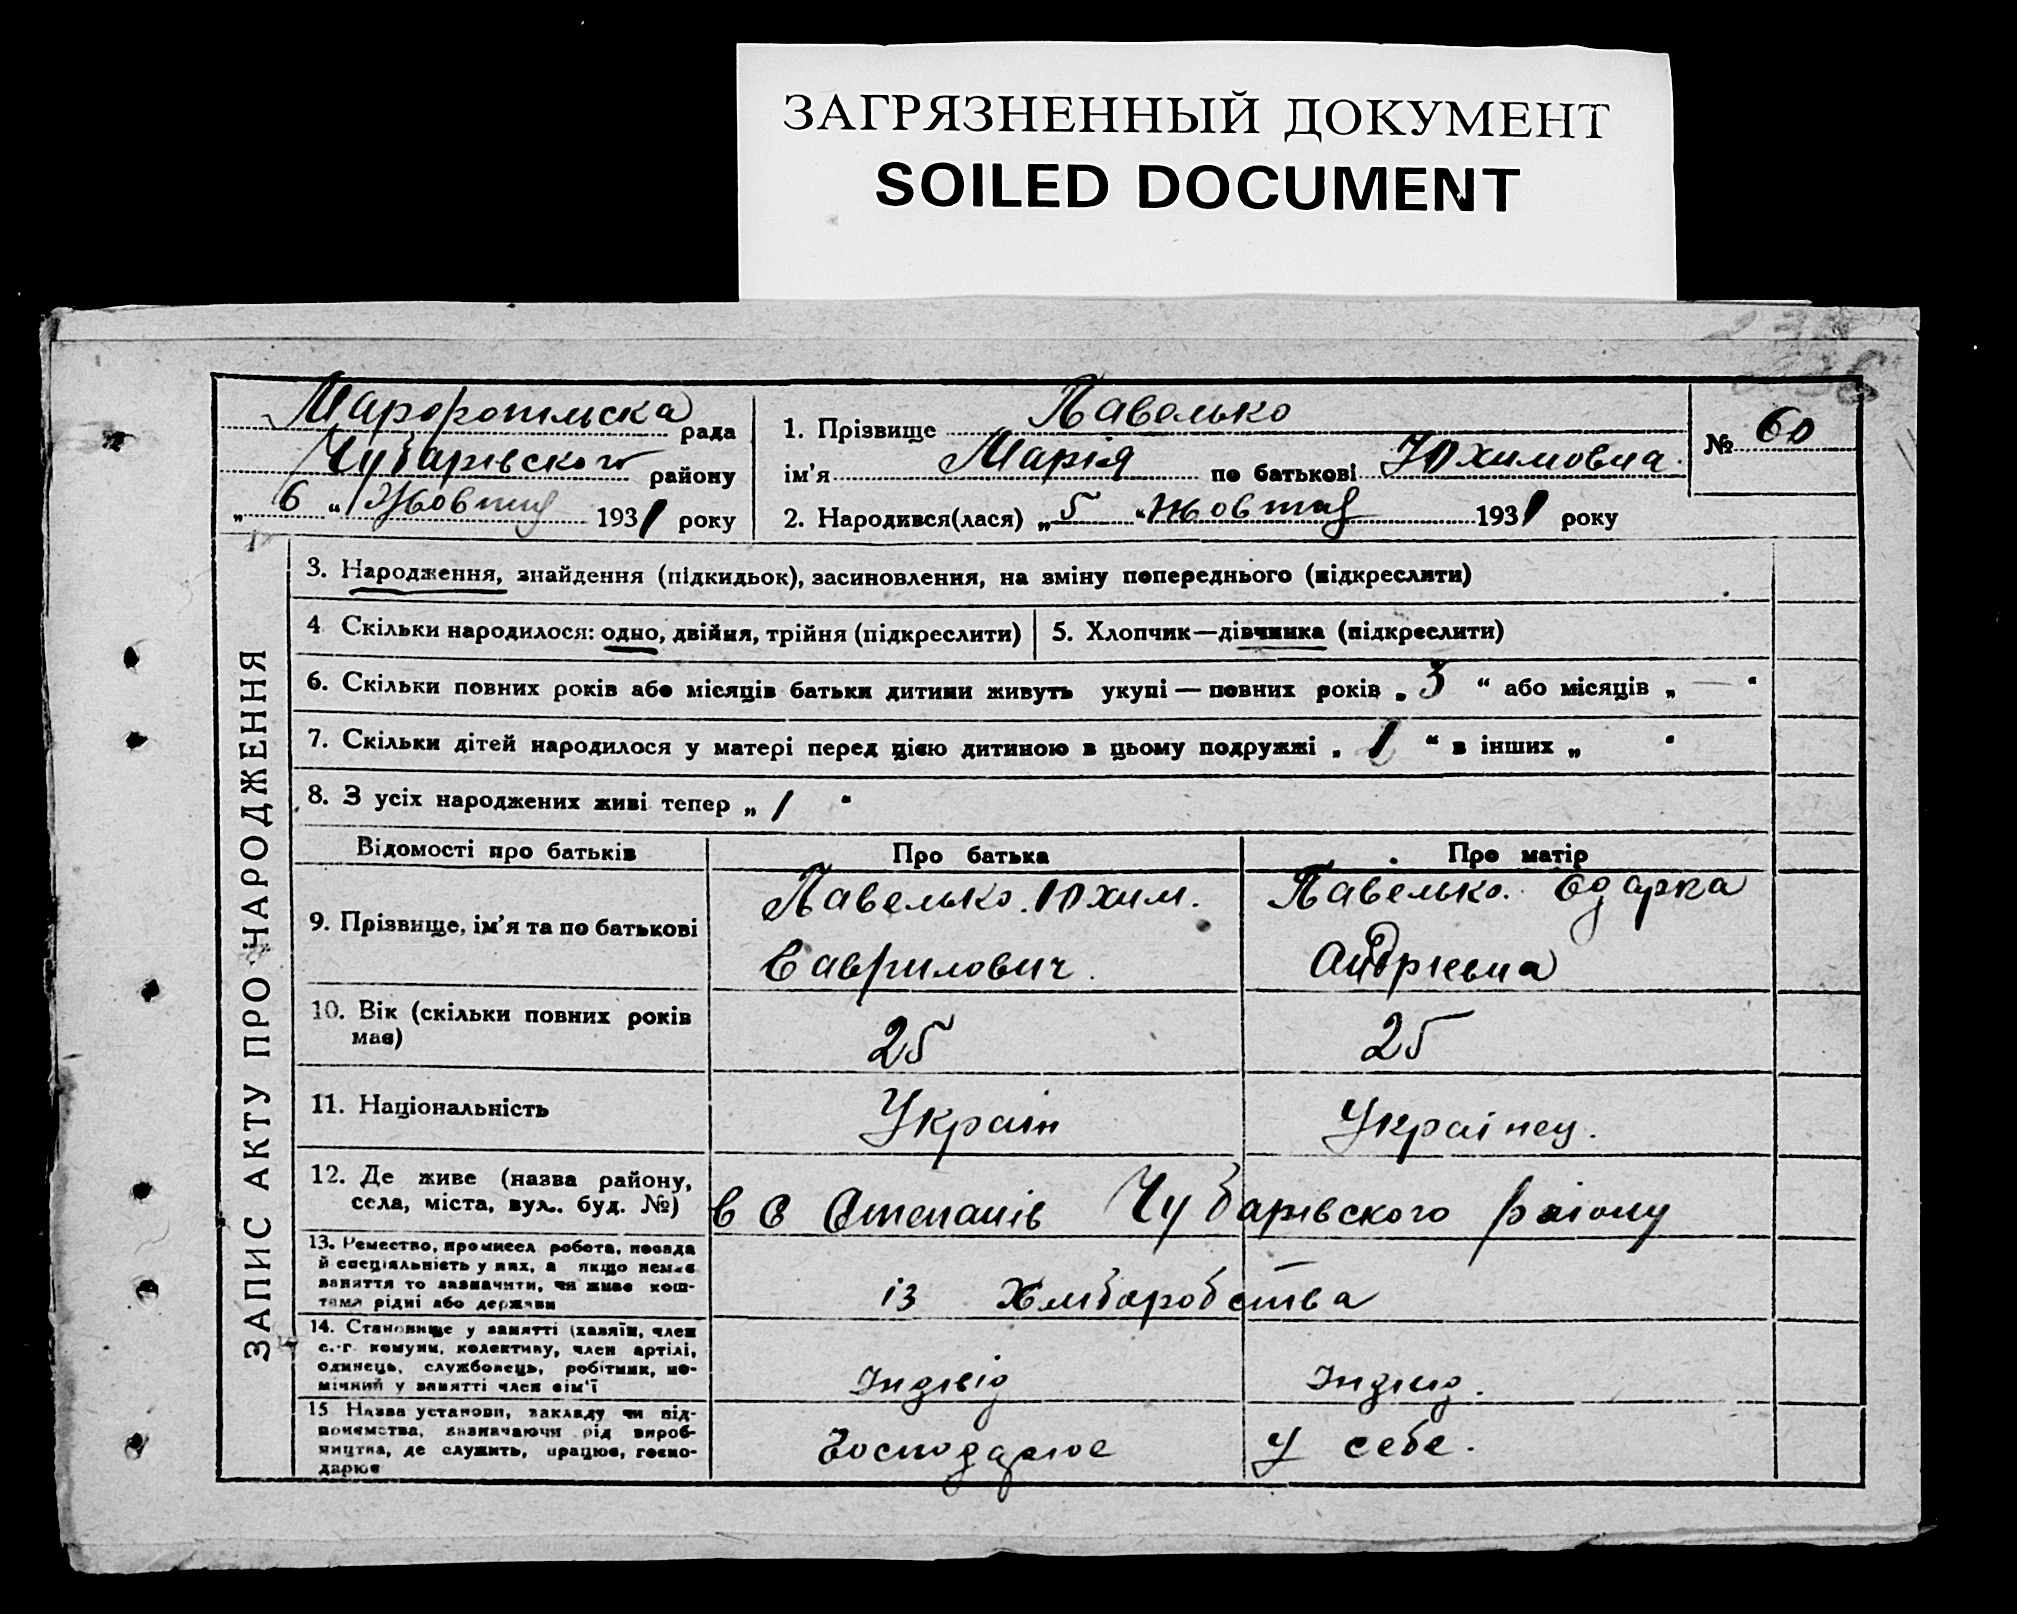 ЗАГРЯЗНЕННЫЙ ДОКУМЕНТ
SOILED DOCUMENT
рада
Чубарівского району
„ 6 “ Жовтня 1931 року
1. Прізвище Павелько
ім’я Марія по батькові Юхимовна
2. Народився(лася) „ 5 “ жовтня 1931 року
№ 60
ЗАПИС АКТУ ПРО НАРОДЖЕННЯ
3. Народження, знайдення (підкидьок), засиновлення, на зміну попереднього (підкреслити)
4. Скільки народилося: одно, двійня, трійня (підкреслити)
5. Хлопчик—дівчинка (підкреслити)
6. Скільки повних років або місяців батьки дитини живуть укупі — повних років „ 3 “ або місяців „ — “
7. Скільки дітей народилося у матері перед цією дитиною в цьому подружжі „ 1 “ в інших „ “
8. З усіх народжених живі тепер „ 1 “
Відомості про батьків
Про батька
Про матір
9. Прізвище, ім’я та по батькові
Павелько Юхим.
Гаврилович.
Павелько. Одарка
Андріевна
10. Вік (скільки повних років
має)
25
25
11. Національність
Україн
Українец.
12. Де живе (назва району,
села, міста, вул.. буд. №)
в С Степанів Чубарівского району
13. Ремество, промисел робота, посада
й спеціяльність у них, а якщо немає
заняття то зазначити, чи живе кош-
тами рідні або держави
із Хліборобства
14. Становище у занятті (хазяїн, член
с.-г. комуни, колективу, член артілі,
одинець, службовець, робітник, по-
мічний у занятті член сім’ї
Індівід
Індивід.
15. Назва установи, закладу чи під-
приємства, зазначаючи рід вироб-
ництва, де служить, працює, госпо-
дарює
Господарює у себе.